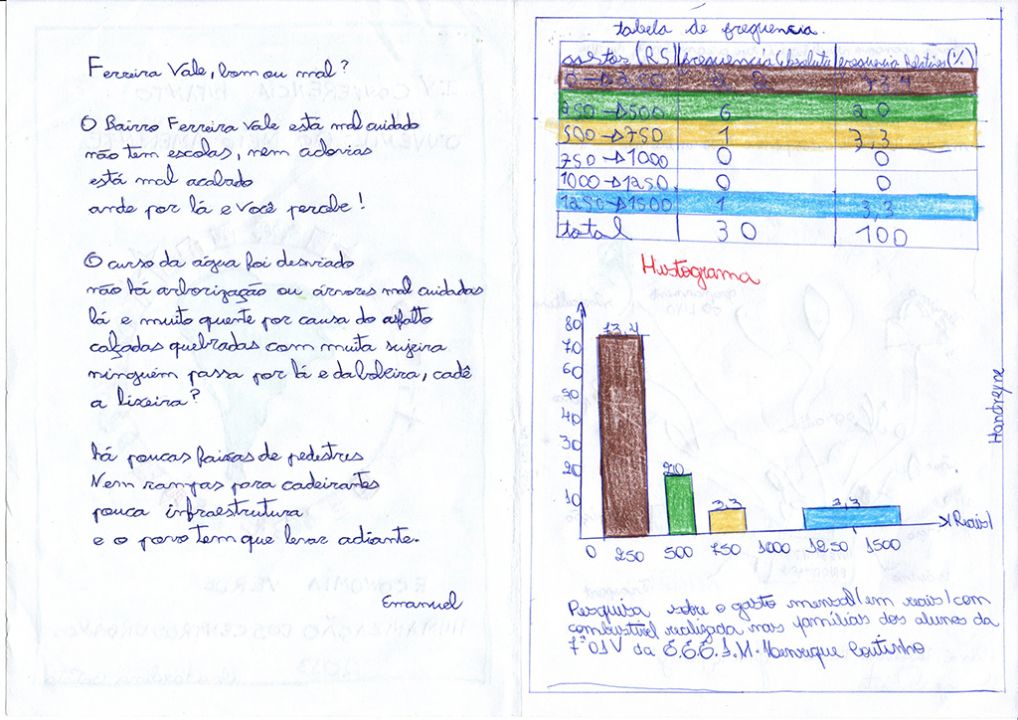 Ferreira Vale, bom ou mal?
O Bairro Ferreira Vale está mal cuidado
não tem escolas, nem ciclovias
está mal acabado
ande por lá e você percebe!
O curso da água foi desviado
não há arborização ou árvores mal cuidadas
lá e muito quente por causa do asfalto
calçadas quebradas com muita sujeira
ninguém passa por lá e dá bobeira, cadê
a lixeira?
há poucas faixas de pedestres
Nem rampas para cadeirantes
pouca infraestrutura
e o povo tem que levar adiante.
Emanuel
tabela de frequencia.
gastos (R$) frequencia Absoluta frequencia Relativa (%)
0 → 250 22 73,4
250 → 500 6 20
500 → 750 1 3,3
750 → 1000 0 0
1000 → 1250 0 0
1250 → 1500 1 3,3
total 30 100
Histograma
80
70
60
50
40
30
20
10
73,4
20
3,3
3,3
0 250 500 750 1000 1250 1500
(Reais)
Pesquisa sobre o gasto mensal (em reais) com
combustível realizada nas famílias dos alunos da
7ª 01 V da E.E.E.F.M. Henrique Coutinho